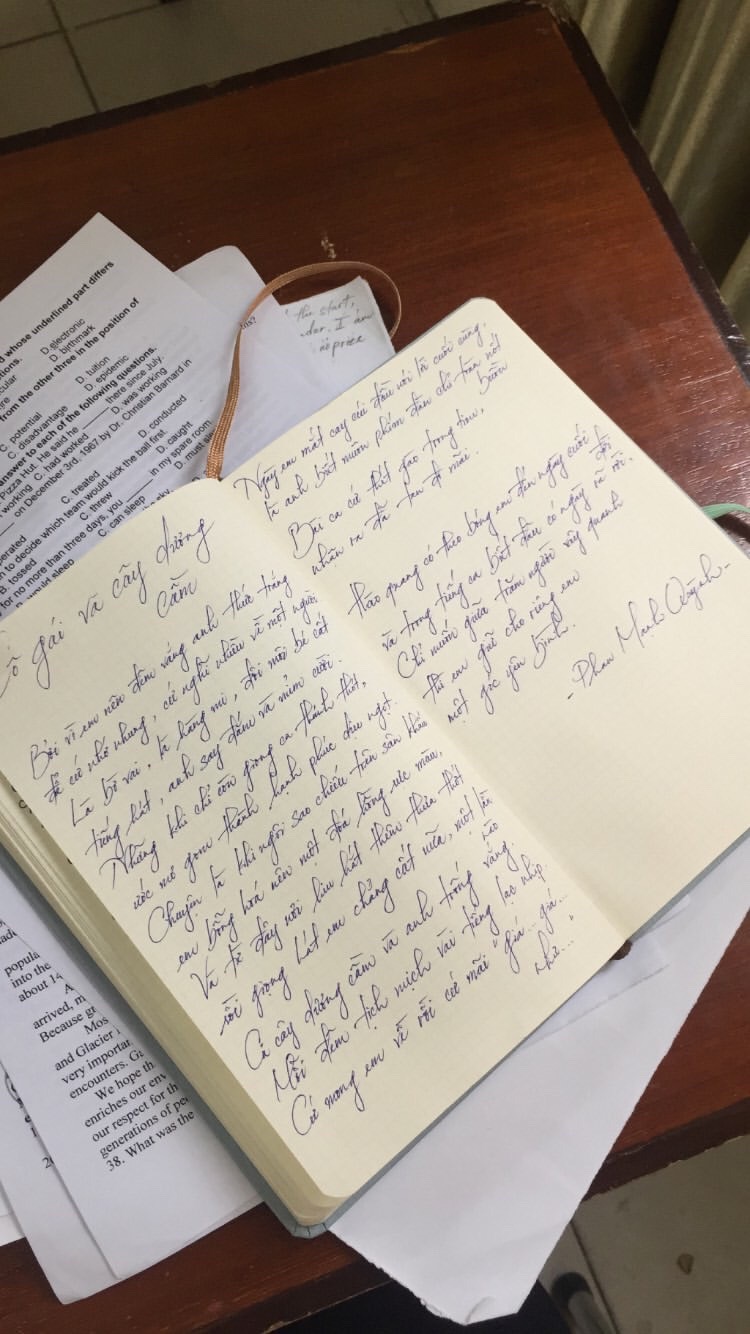 d whose underlined part differs
tions.
D. electronic
cular
D. birthmark
from the other three in the position of
C. potential
D. tuition
C. disadvantage
D. epidemic
answer to each of the following questions.
Pizza Hut. He said he ____ there since July.
working C. had worked D. was working
on December 3rd, 1967 by Dr. Christian Barnard in
C. treated
D. conducted
n to decide which team would kick the ball first.
B. tossed
C. threw
D. caught
for no more than three days, you ____ in my spare room
C. can sleep
D. must
the start,
I am
Cô gái và cây dương
cầm
Bởi vì em nên đêm vắng anh thức trắng
để cứ nhớ nhung, cứ nghĩ nhiều về một người
Là bờ vai, là hàng mi, đôi môi bé cất
tiếng hát, anh say đắm và mỉm cười.
Những khi chỉ còn giọng ca thánh thót,
ước mơ gom thành hạnh phúc dịu ngọt.
Chuyện là khi ngôi sao chiếu trên sân khấu
em bỗng hoá nên một đoá hồng ức màu,
Và từ đây với líu hát thôn thưa thớt
rồi giọng hát em chẳng cất nữa, một lần nào
Cả cây dương cầm và anh trống vắng
Mỗi đêm tịch mịch vài tiếng lạc nhịp
Cứ mong em về rồi cứ mãi "giá... giá...
như..."
Ngày em mắt cay cúi đầu với lời cuối cùng,
là anh bất muôn phím đàn chỉ toàn nốt
buồn
Bài ca cứ thét gào trong tim,
nhận ra đã tan đi mãi.
Hào quang có theo bóng em đến ngày cuối đời
và trong tiếng ca bắt đầu có ngày rã rời.
Chỉ muốn giữa trăm người vây quanh
thì em giữ cho riêng em
một góc yên bình.
- Phan Mạnh Quỳnh -
popula
into the
about 14
A
arrived, m
Because gr
Mos
and Glacier
very importan
encounters. Gu
We hope th
enriches our env
our respect for th
generations of peo
38. What was the